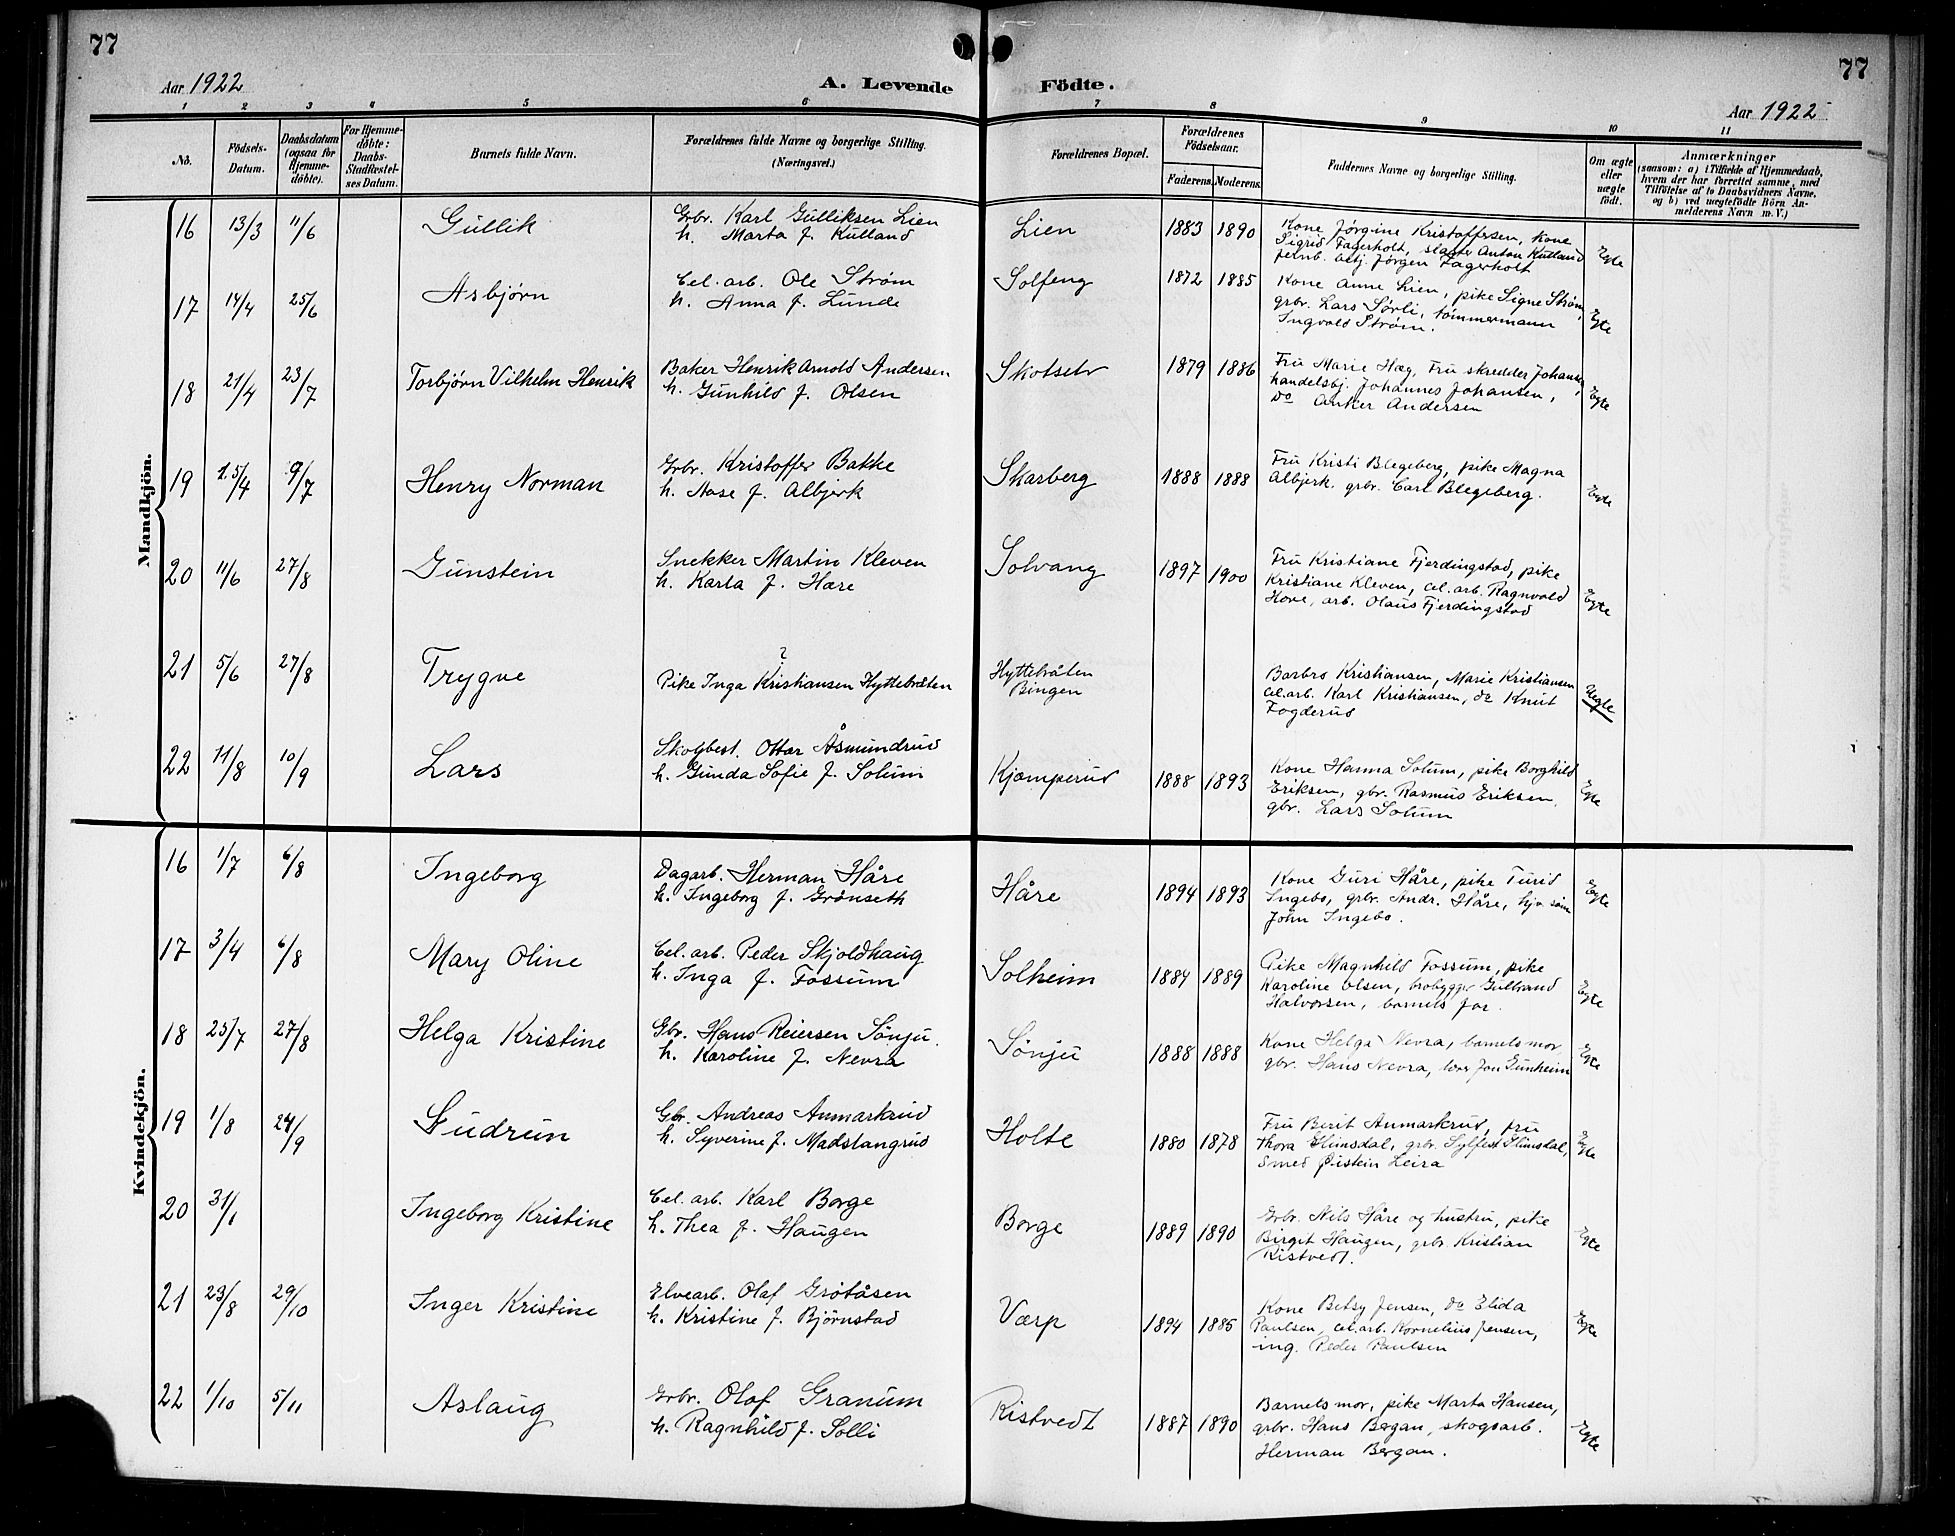 77
77
Aar 1922
A. Levende
Födte.
Aar 1922
1 2 3 4 5 6 7 8 9 10 11
No.
Födsels-
Datum.
Daabsdatum
(ogsaa for
Hjemme-
döbte).
For Hjemme-
döbte:
Daabs-
Stadfæstel-
ses Datum.
Barnets fulde Navn.
Forældrenes fulde Navne og borgerlige Stilling.
(Næringsvei.)
Forældrenes Bopæl.
Forældrenes
Födselsaar.
Faderens. Moderens.
Faddernes Navne og borgerlige Stilling.
Om ægte
eller
uægte
födt.
Anmærkninger
(saasom: a) i Tilfælde af Hjemmedaab,
hvem der har forrettet samme, med
Tilföielse af to Daabsvidners Navne,
og b) ved uægtefödte Börn An-
melderens Navn m. V.)
Mandkjön.
16 13/3 11/6 Gullik Grbr. Karl Gulliksen Lien
h. Marta f. Kulland
Lien 1883 1890 Kone Jørgine Kristoffersen, kone
Sigrid Fagerholt, slagter Anton Kulland
jernb. betj. Jørgen Fagerholt
Egte
17 14/4 25/6 Asbjørn Cel. arb. Ole Strøm
h. Anna f. Lunde
Solfeng 1872 1885 Kone Anne Lien, pike Signe Strøm,
grbr. Lars Sørli, tømmermann
Ingvald Strøm.
Egte
18 21/4 23/7 Torbjørn Vilhelm Henrik Baker Henrik Arnold Andersen
h. Gunhild f. Olsen
Skotselv 1879 1886 Fru Marie Hæg, Fru skredder Johansen,
handelsbj. Johannes Johansen,
do Anker Andersen
Egte
19 15/4 9/7 Henry Norman Grbr. Kristoffer Bakke
h. Aase f. Albjerk
Skarberg 1888 1888 Fru Kristi Blegeberg, pike Magna
Albjerk, grbr. Carl Blegeberg.
Egte
20 11/6 27/8 Gunstein Snekker Martin Kleven
h. Karla f. Hære
Solvang 1897 1900 Fru Kristiane Fjerdingstad, pike
Kristiane Kleven, cel. arb. Ragnvald
Hore, arb. Olaus Fjerdingstad
Egte
21 5/6 27/8 Trygve ?
Pike Inga Kristiansen Hyttebråten
Hyttebråten
Bingen
Barbro Kristiansen, Marie Kristiansen
cel. arb. Karl Kristiansen, do Knut
Fogderud
Uegte
22 11/8 10/9 Lars Skolebest. Ottar Åsmundrud
h. Gunda Sofie f. Solum
Kjæmperud 1888 1893 Kone Hanna Solum, pike Borghild
Eriksen, gbr. Rasmus Eriksen,
gbr. Lars Solum
Egte
Kvindekjön.
16 1/7 6/8 Ingeborg Dagarb. Herman Håre
h. Ingeborg f. Grønseth
Håre 1894 1893 Kone Guri Håre, pike Turid
Ingebo, grbr. Andr. Håre, hjv. søn
John Ingebo.
Egte
17 3/4 6/8 Mary Oline Cel. arb. Peder Skjoldhaug
h. Inga f. Fossum
Solheim 1884 1889 Pike Magnhild Fossum, pike
Karoline Olsen, brobygger Gulbrand
Halvorsen, barnets far.
Egte
18 25/7 27/8 Helga Kristine Gbr. Hans Reiersen Sønju.
h. Karoline f. Nevra
Sønju 1888 1888 Kone Helga Nevra, barnets mor,
gbr. Hans Nevra, lærer Jon Gunheim
Egte
19 1/8 24/9 Gudrun Gbr. Andreas Anmarkrud
h. Syverine f. Madslangrud
Holte 1880 1878 Fru Berit Anmarkrud, fru
Thora Glimsdal, grbr. Sylfest Glimsdal,
smed Øistein Leira
Egte
20 31/1 Ingeborg Kristine Cel. arb. Karl Borge
h. Thea f. Haugen
Borge 1889 1890 Grbr. Nils Håre og hustru, pike
Birgit Haugen, grbr. Kristian
Ristvedt.
Egte
21 23/8 29/10 Inger Kristine Elvearb. Olaf Grøtåsen
h. Kristine f. Bjørnstad
Værp 1894 1885 Kone Betsy Jensen, do Elida
Paulsen, cel. arb. Kornelius Jensen,
ing. Peder Paulsen
Egte
22 1/10 5/11 Aslaug Grbr. Olaf Granum
h. Ragnhild f. Solli
Ristvedt 1887 1890 Barnets mor, pike Marta Hansen,
grbr. Hans Bergan, skogsarb.
Herman Bergan.
Egte